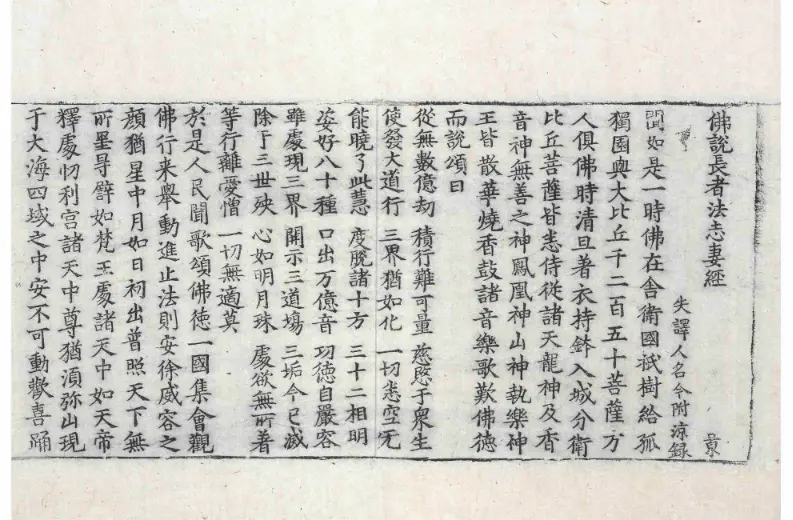 佛說長者法志妻經 景
失譯人名今附涼錄
聞如是一時佛在舍衛國祇樹給孤
獨園與大比丘千二百五十菩薩万
人俱佛時清旦著衣持鉢入城分衛
比丘菩薩皆悉侍從諸天龍神及香
音神無善之神鳳凰神山神執樂神
王皆散華燒香鼓諸音樂歌歎佛德
而說頌曰
從無數億劫 積行難可量 慈愍于衆生
使發大道行 三界猶如化 一切悉空无
能曉了此慧 度脫諸十方 三十二相明
姿好八十種 口出万億音 功德自嚴容
雖處現三界 開示三道場 三垢今已滅
除于三世殃 心如明月珠 處欲無所著
等行離愛憎 一切無適莫
於是人民聞歌頌佛德一國集會觀
佛行来舉動進止法則安徐威容之
顏猶星中月如日初出普照天下無
所罣㝵辟如梵王處諸天中如天帝
釋處忉利宮諸天中尊猶湏弥山現
于大海四域之中安不可動歡喜踊